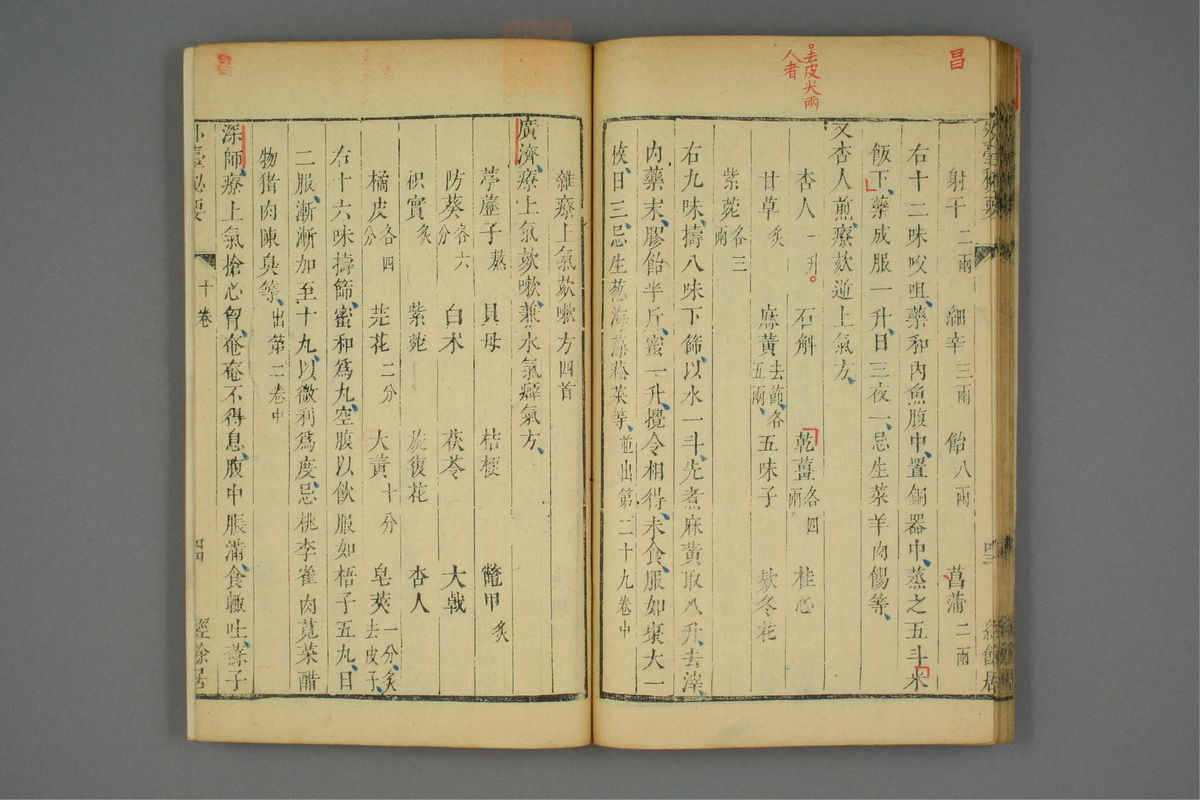 昌
去皮尖兩
人者
射干二兩 細辛三兩 飴八兩 菖蒲二兩
右十二味㕮咀藥和內魚腹中置銅器中蒸之五斗米
飯下藥成服一升日三夜一忌生菜羊肉餳等
又杏人煎療欬逆上氣方
杏人一升 石斛 乾薑各四兩 桂心
甘草炙 麻黃去節各五兩 五味子 欵冬花
紫菀各三兩
右九味擣八味下篩以水一斗先煮麻黃取八升去滓
內藥末膠飴半斤蜜一升攪令相得未食服如棗大一
枚日三忌生葱海藻菘菜等並出第二十九卷中
雜療上氣欬嗽方四首
廣濟療上氣欬嗽兼水氣癖氣方
葶藶子熬 貝母 桔梗 鼈甲炙
防葵各六分 白术 茯苓 大戟
枳實炙 紫菀 旋復花 杏人
橘皮各四分 芫花二分 大黃十分 皂莢一分炙去皮子
右十六味擣篩蜜和爲丸空腹以飲服如梧子五丸日
二服漸漸加至十丸以微利爲度忌桃李雀肉莧菜醋
物猪肉陳臭等出第二卷中
深師療上氣搶心胷奄奄不得息腹中脹滿食輒吐蘇子
外臺秘要 十卷 四四 經餘居